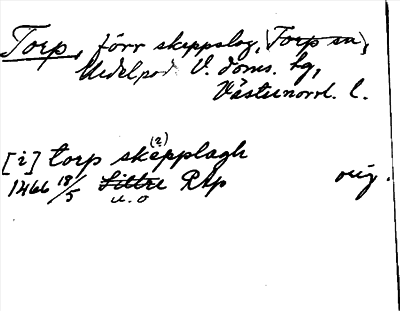 Torp, förr skeppslag, Torp sn,
Medelpad V. doms. hg,
Västernorrl. l.
[i] torp skepplagh (?)
1466 18/5 Sittre RAp orig.
u. o